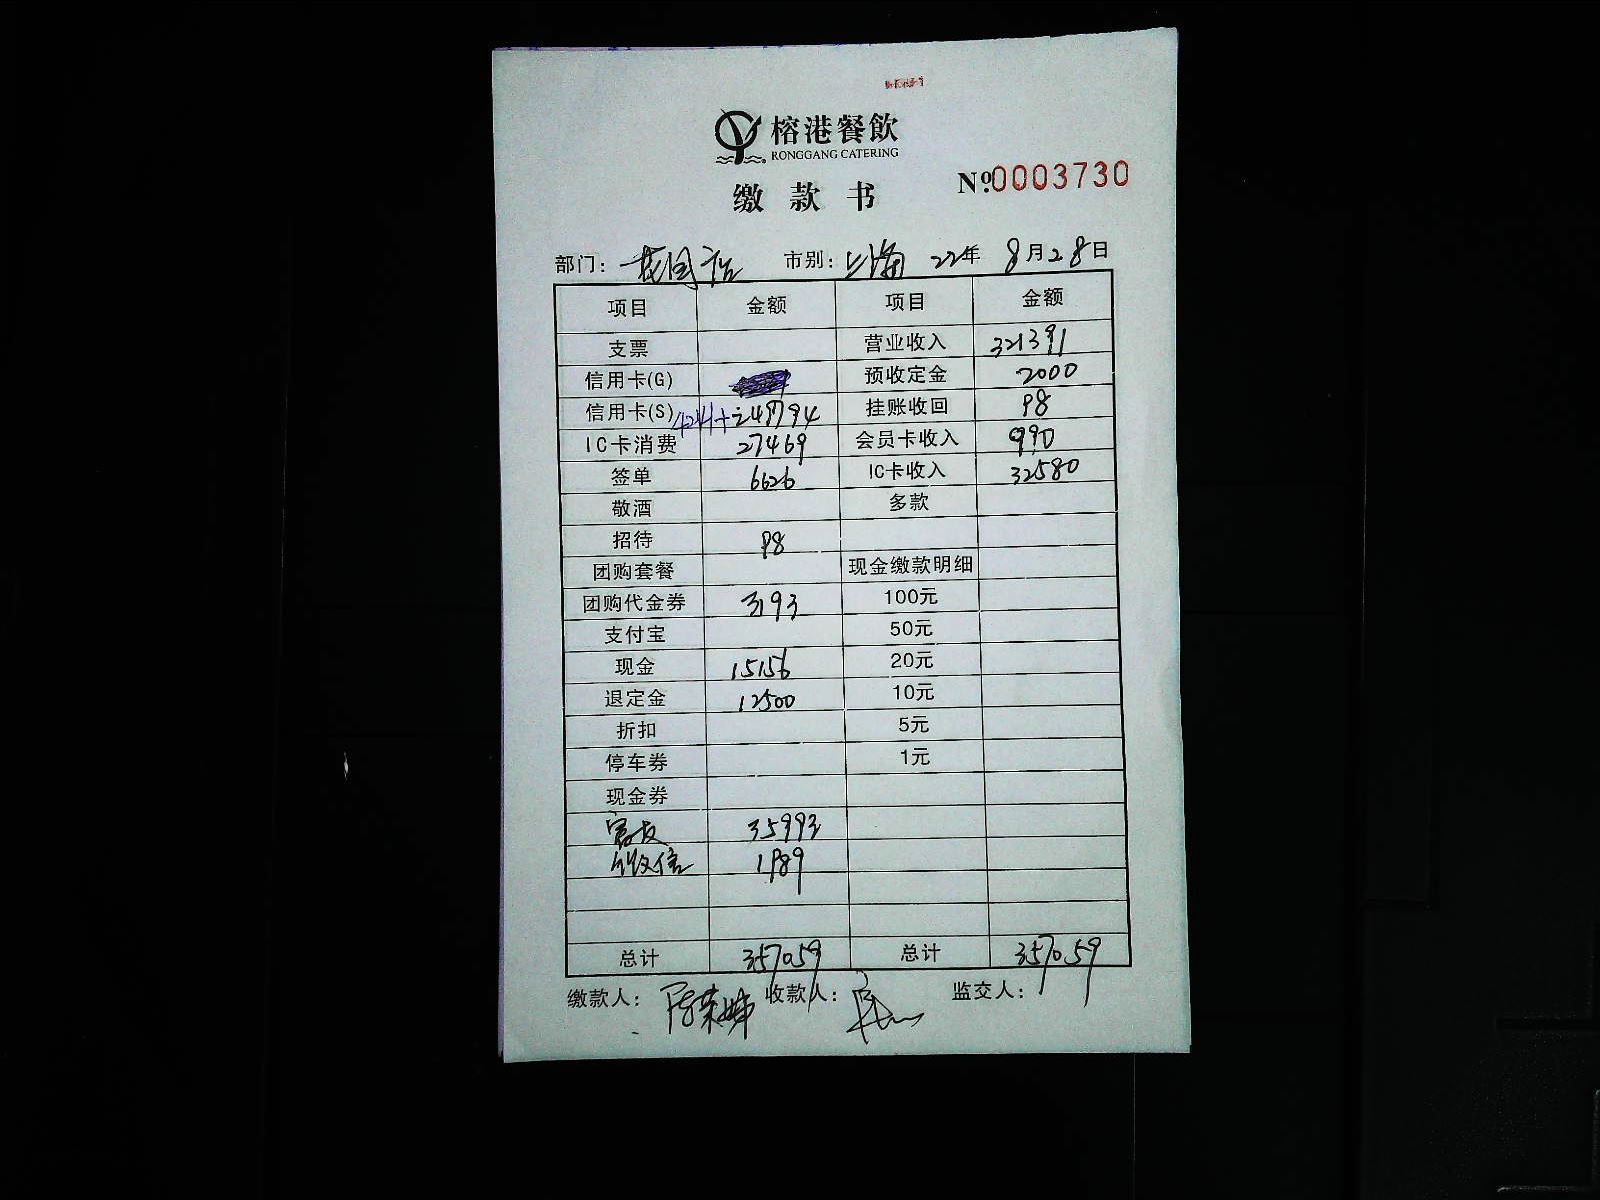 榕港餐飲
RONGGANG CATERING
缴款书
№0003730
部门： 市别：上海 22年 8月28日
项目 金额 项目 金额
支票 营业收入 321391
信用卡(G) 预收定金 2000
信用卡(S) 4241+249794 挂账收回 98
IC卡消费 27469 会员卡收入 990
签单 6626 IC卡收入 32580
敬酒 多款
招待 98
团购套餐 现金缴款明细
团购代金券 3193 100元
支付宝 50元
现金 15156 20元
退定金 12500 10元
折扣 5元
停车券 1元
现金券
35993
微信 1989
总计 357059 总计 357059
缴款人： 收款人： 监交人：